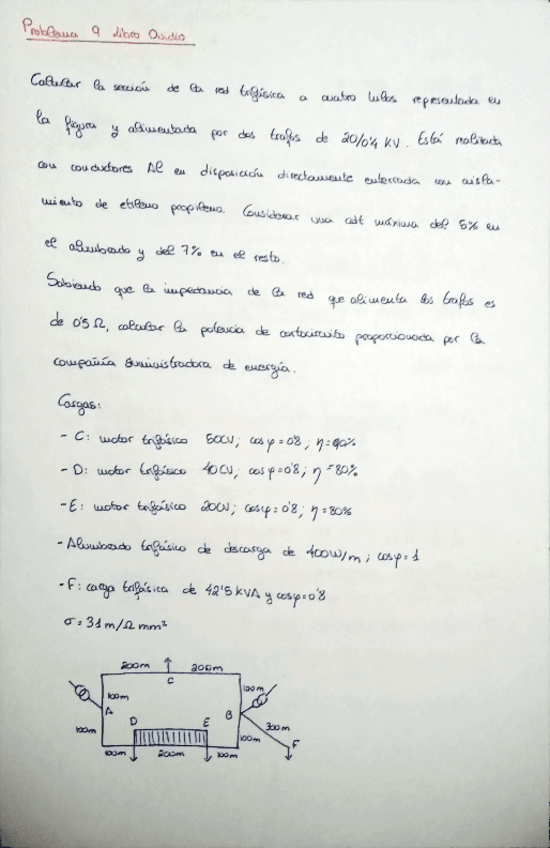 Problema 9 Libro Ovidio
Calcular la sección de la red trifásica a cuatro hilos representada en
la figura y alimentada por dos trafos de 20/0'4 KV. Está realizada
con conductores Al en disposición directamente enterrada con aisla-
miento de etileno propileno. Considerar una cdt máxima del 5% en
el alumbrado y del 7% en el resto.
Sabiendo que la impedancia de la red que alimenta los trafos es
de 0'5 Ω, calcular la potencia de cortocircuito proporcionada por la
compañía suministradora de energía.
Cargas:
- C: motor trifásico 50CV; cosφ=0'8; η=90%
- D: motor trifásico 40CV, cosφ=0'8; η=80%
- E: motor trifásico 20CV; cosφ=0'8; η=80%
- Alumbrado trifásico de descarga de 400W/m; cosφ=1
- F: carga trifásica de 42'5 KVA y cosφ=0'8
σ=31 m/Ω mm²
200m 200m
C
100m 100m
A B
100m D E 100m 300m
F
100m 200m 100m